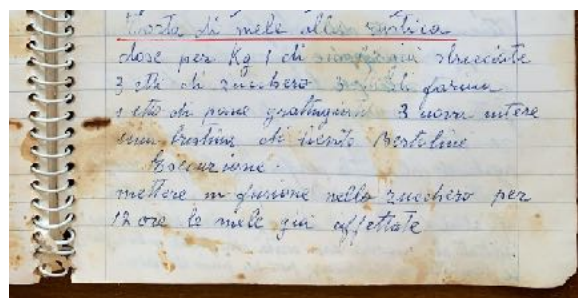 Torta di mele alla rustica
dose per Kg 1 di già sbucciate
3 etti di zucchero farina
1 etto di pane grattugiato 3 uova intere
una bustina di lievito Bertolini
Esecuzione.
mettere in fusione nello zucchero per
12 ore le mele già affettate